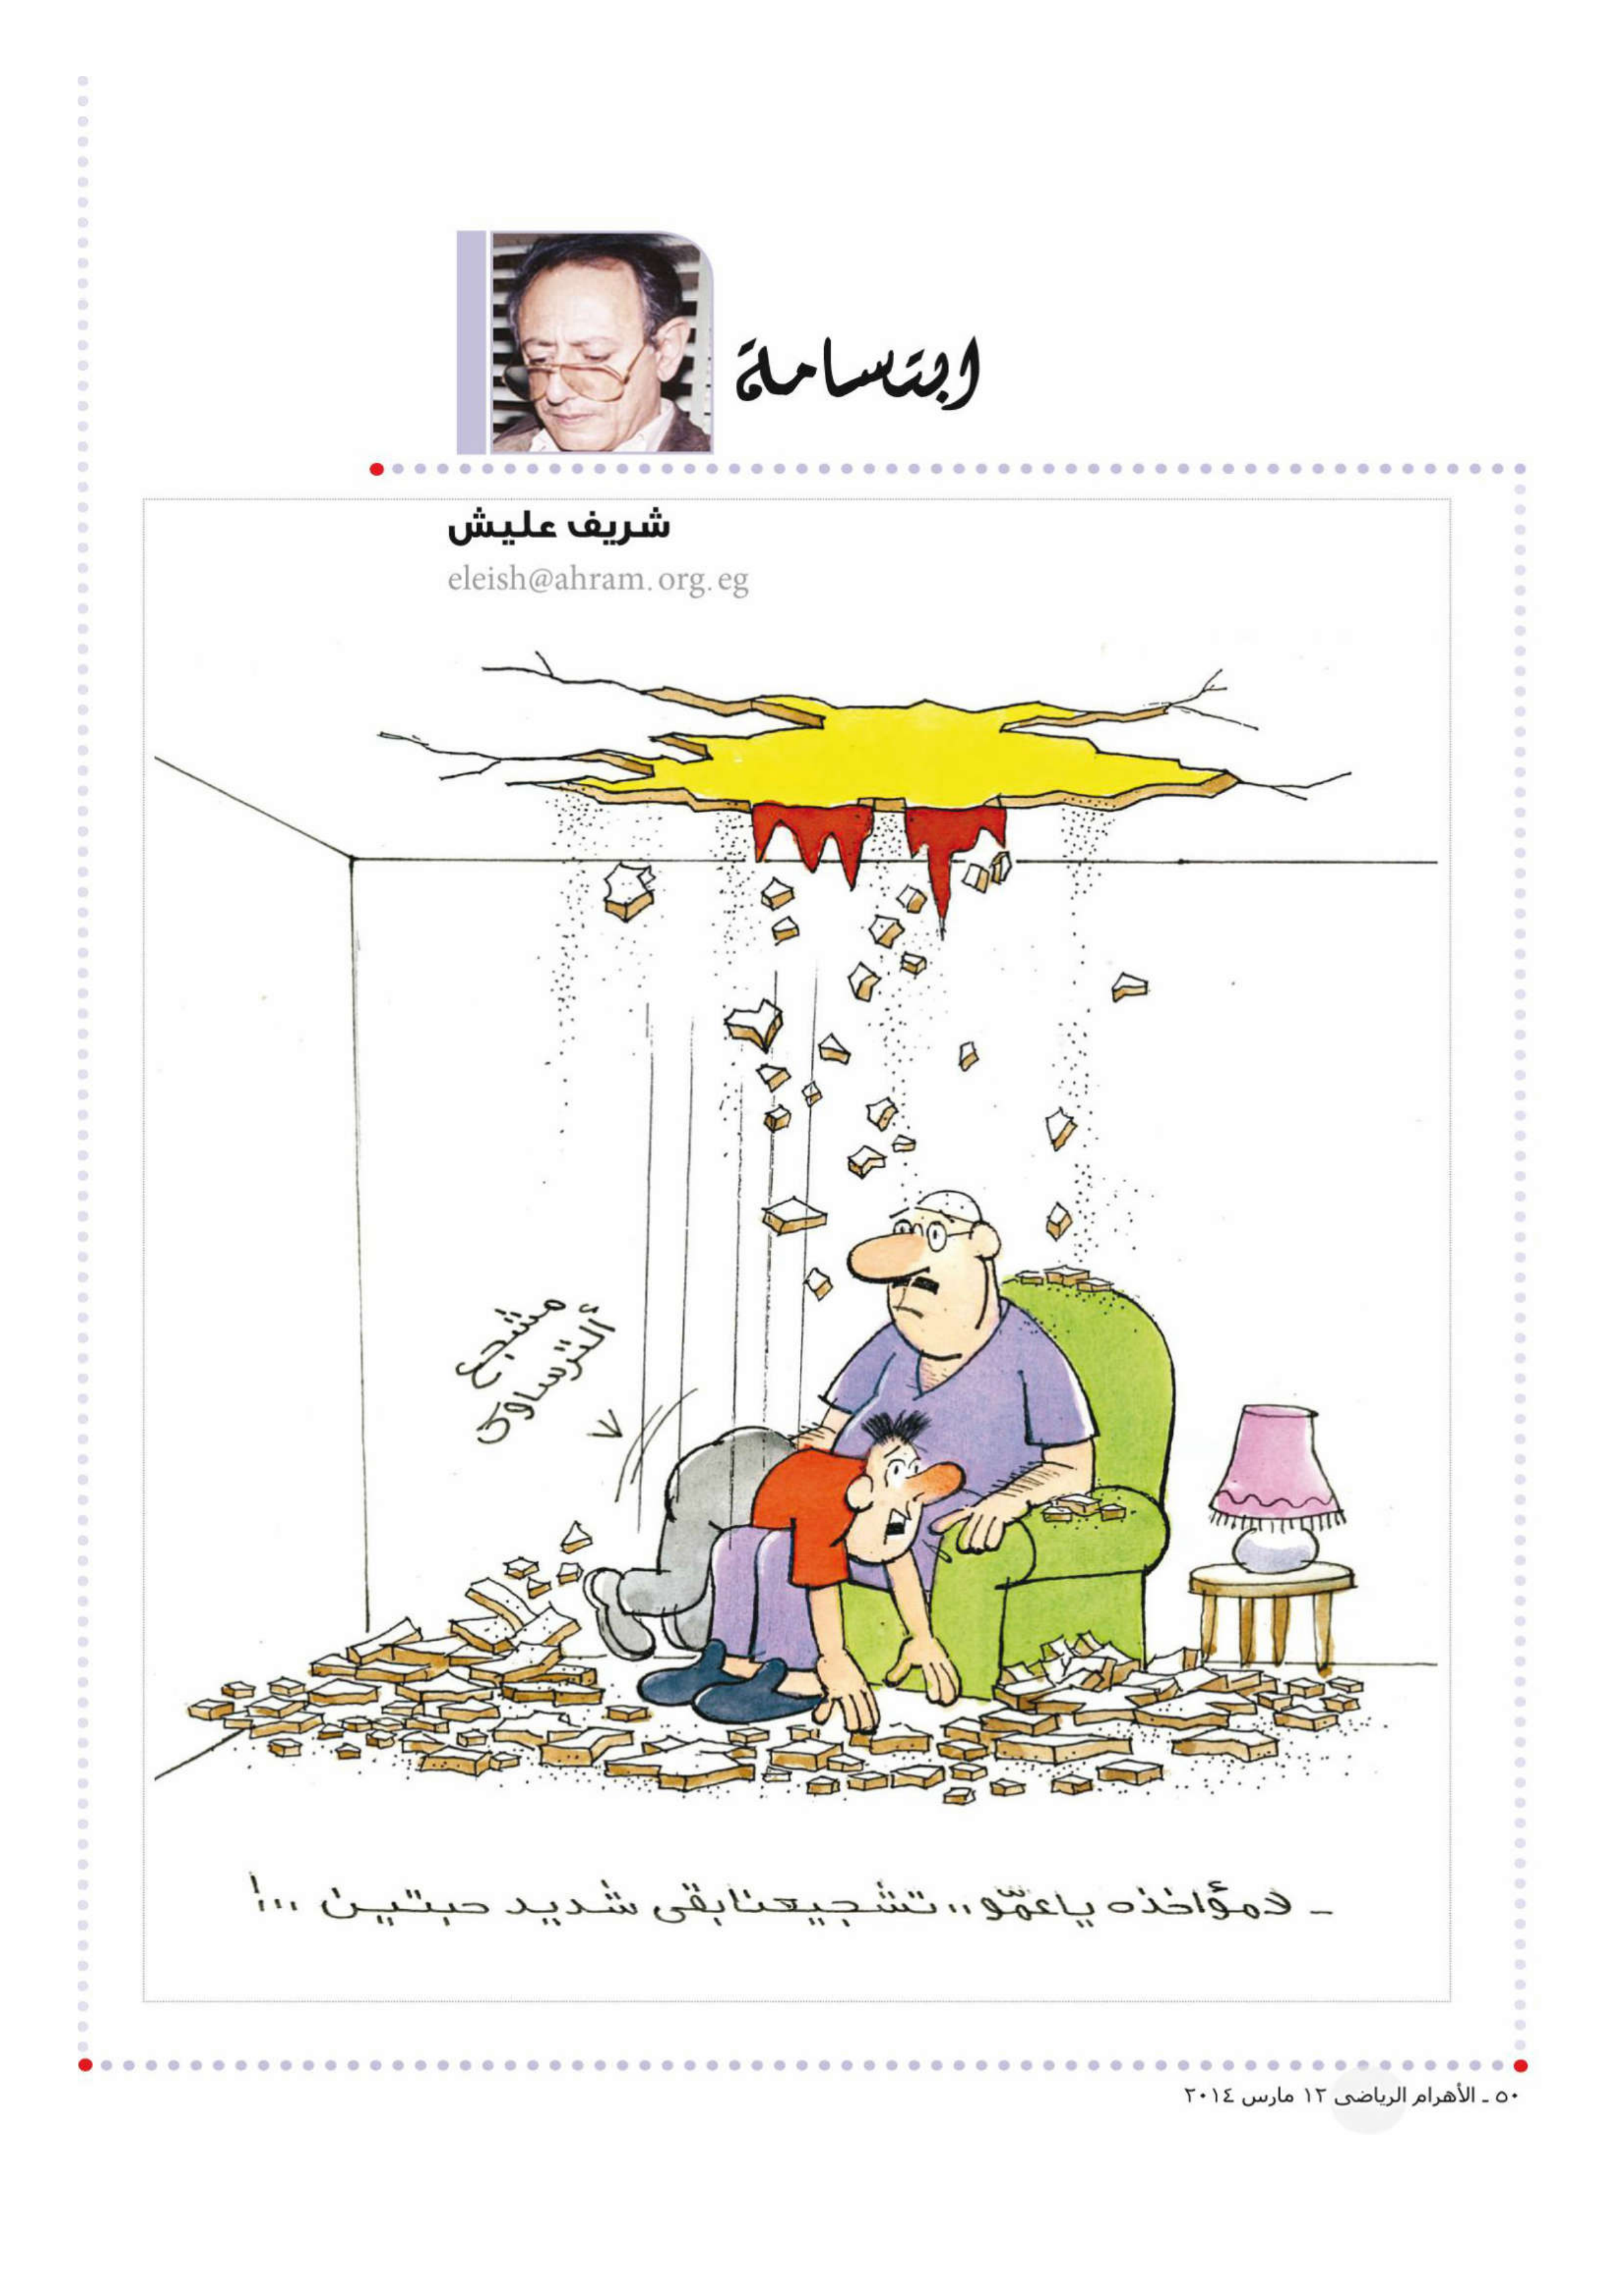 ابتسامة
شريف عليش
eleish@ahram.org.eg
مشجع
الترساوى
ـ لامؤاخذه ياعمّو .. تشجيعنا بقى شديد حبتين ...!
٥٠ ـ الأهرام الرياضى ١٢ مارس ٢٠١٤